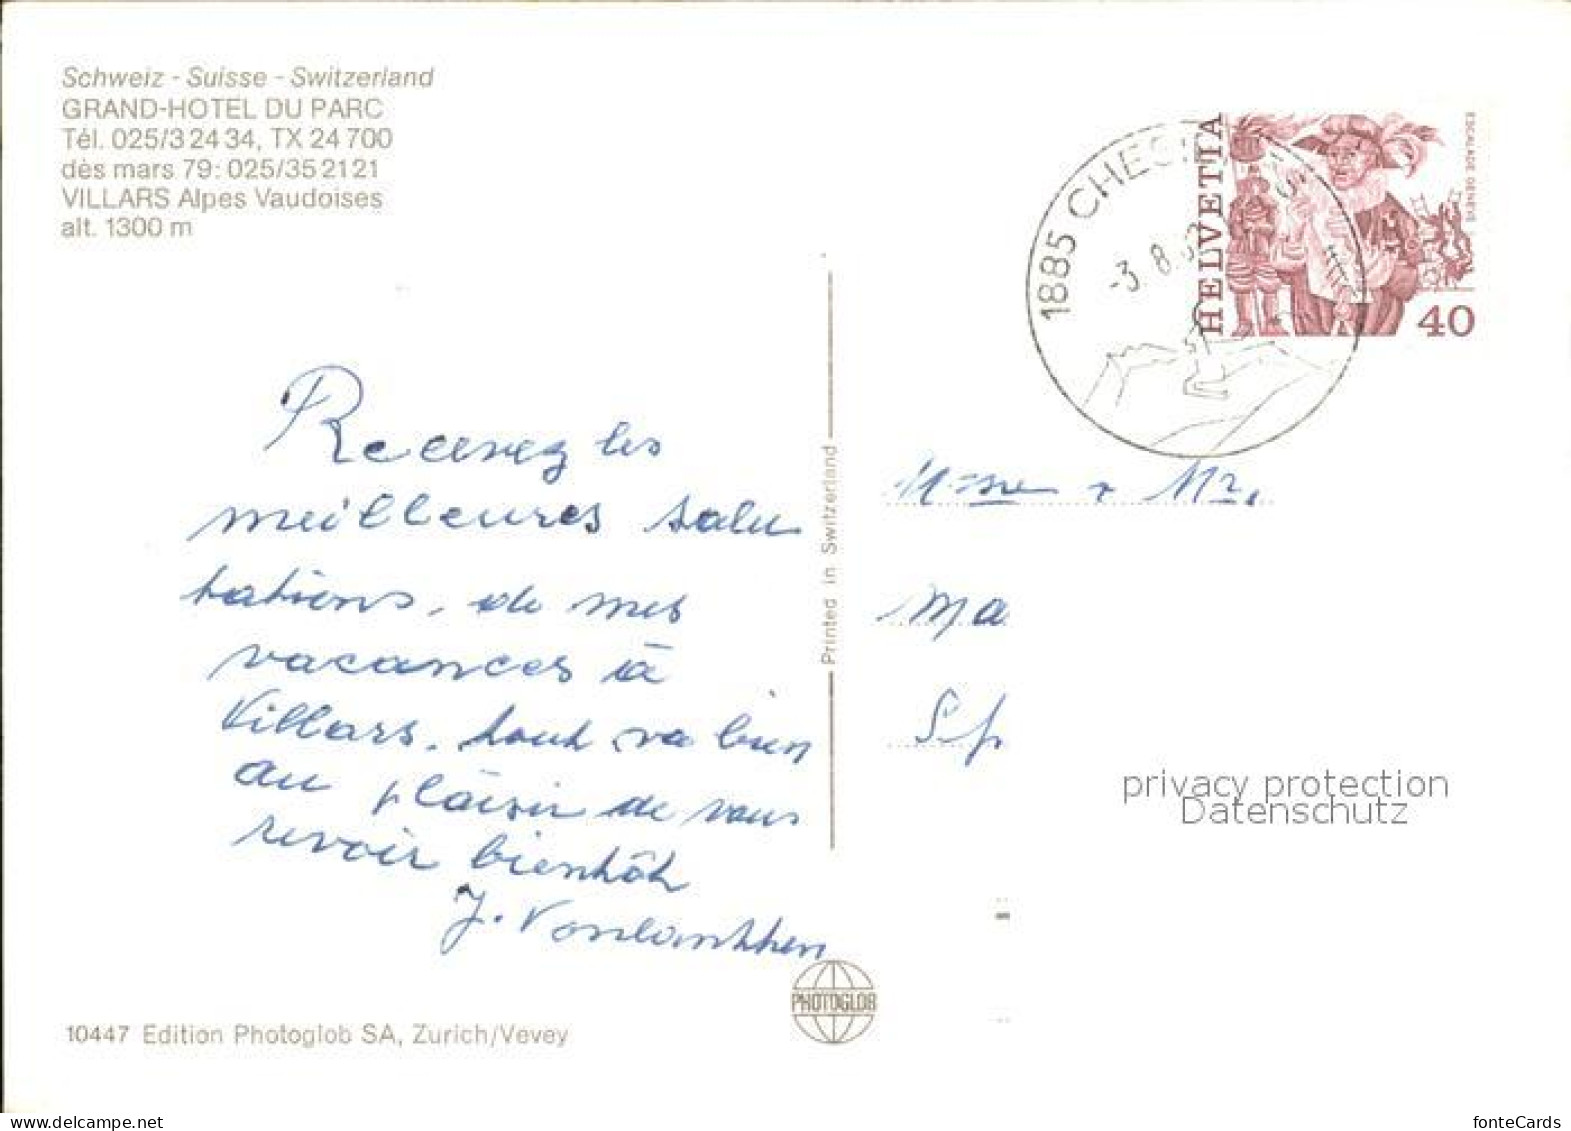 Schweiz - Suisse - Switzerland
GRAND-HOTEL DU PARC
Tél. 025/3 24 34, TX 24 700
dès mars 79: 025/35 21 21
VILLARS Alpes Vaudoises
alt. 1300 m
1885 CHES
-3. 8. 8
HELVETIA
ESCALADE GENEVE
40
Recevez les
meilleures salu
tations, de mes
vacances à
Villars, tout va bien
au plaisir de vous
revoir bientôt
J. Vonlanthen
Printed in Switzerland
Mme + Mr.
Ma
privacy protection
Datenschutz
PHOTOGLOB
10447 Edition Photoglob SA, Zurich/Vevey
delcampe.net
fonteCards